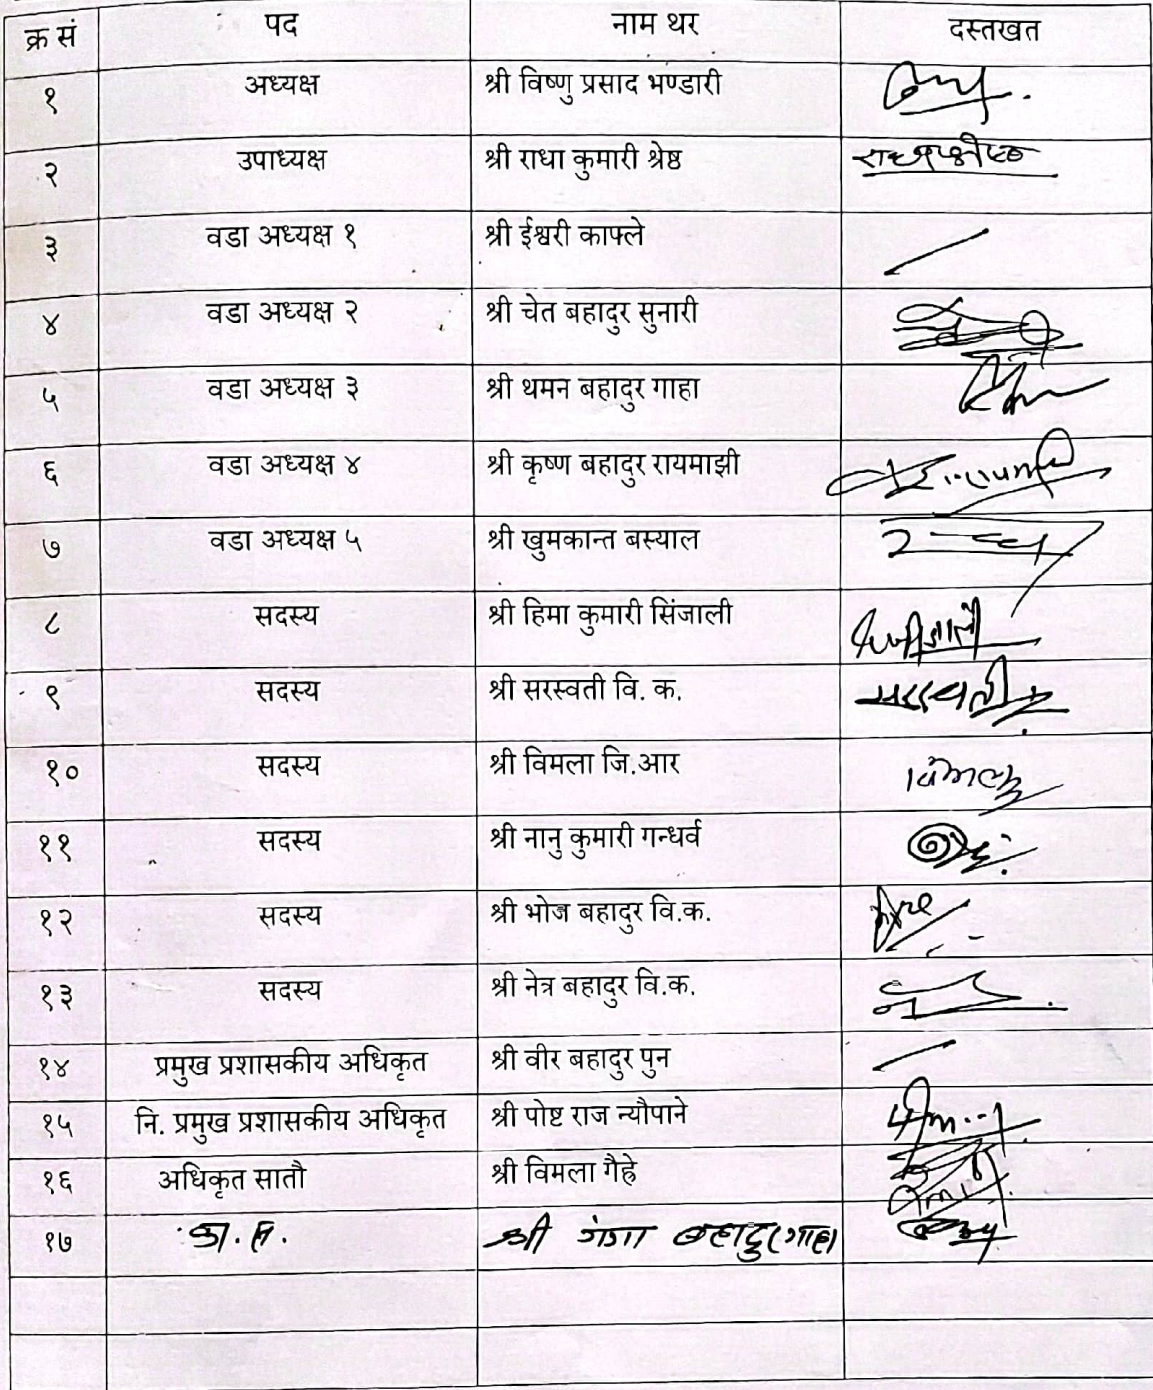 क्र सं पद नाम थर दस्तखत
१ अध्यक्ष श्री विष्णु प्रसाद भण्डारी
२ उपाध्यक्ष श्री राधा कुमारी श्रेष्ठ राधाश्रेष्ठ
३ वडा अध्यक्ष १ श्री ईश्वरी काफ्ले
४ वडा अध्यक्ष २ श्री चेत बहादुर सुनारी
५ वडा अध्यक्ष ३ श्री थमन बहादुर गाहा
६ वडा अध्यक्ष ४ श्री कृष्ण बहादुर रायमाझी
७ वडा अध्यक्ष ५ श्री खुमकान्त बस्याल
८ सदस्य श्री हिमा कुमारी सिंजाली
९ सदस्य श्री सरस्वती वि. क. सरस्वती
१० सदस्य श्री विमला जि.आर विमला
११ सदस्य श्री नानु कुमारी गन्धर्व
१२ सदस्य श्री भोज बहादुर वि.क.
१३ सदस्य श्री नेत्र बहादुर वि.क.
१४ प्रमुख प्रशासकीय अधिकृत श्री वीर बहादुर पुन
१५ नि. प्रमुख प्रशासकीय अधिकृत श्री पोष्ट राज न्यौपाने
१६ अधिकृत सातौ श्री विमला गैह्रे
१७ श्री गंगा बहादुर गाहा